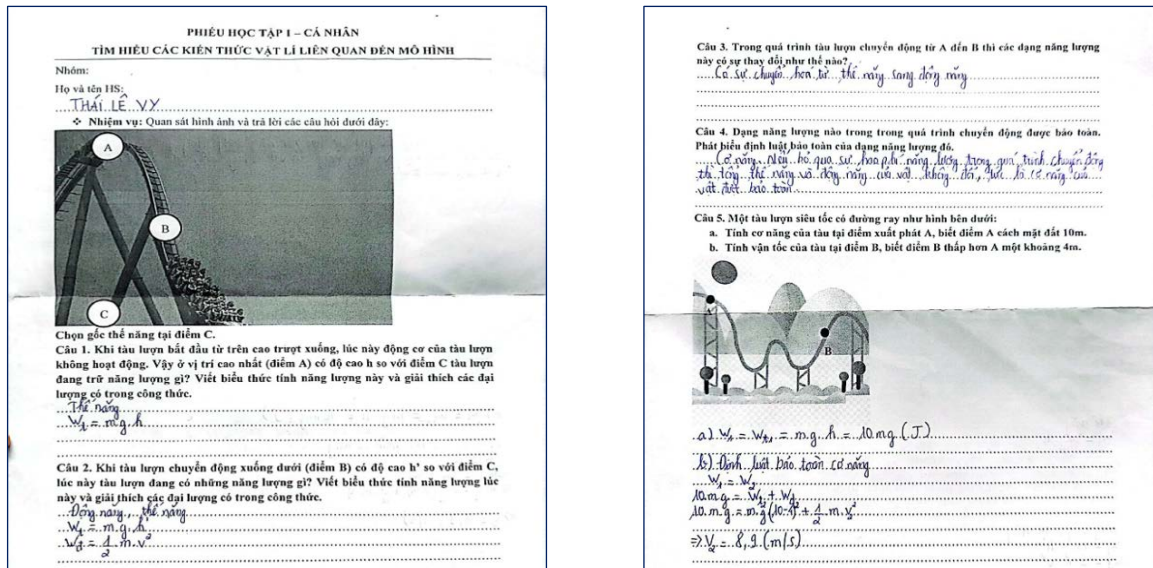 PHIẾU HỌC TẬP 1 – CÁ NHÂN
TÌM HIỂU CÁC KIẾN THỨC VẬT LÍ LIÊN QUAN ĐẾN MÔ HÌNH
Nhóm:
Họ và tên HS:
THÁI LÊ VY
❖ Nhiệm vụ: Quan sát hình ảnh và trả lời các câu hỏi dưới đây:
A
B
C
Chọn gốc thế năng tại điểm C.
Câu 1. Khi tàu lượn bắt đầu từ trên cao trượt xuống, lúc này động cơ của tàu lượn
không hoạt động. Vậy ở vị trí cao nhất (điểm A) có độ cao h so với điểm C tàu lượn
đang trữ năng lượng gì? Viết biểu thức tính năng lượng này và giải thích các đại
lượng có trong công thức.
Thế năng
Wt = m.g.h
Câu 2. Khi tàu lượn chuyển động xuống dưới (điểm B) có độ cao h' so với điểm C,
lúc này tàu lượn đang có những năng lượng gì? Viết biểu thức tính năng lượng lúc
này và giải thích các đại lượng có trong công thức.
Động năng, thế năng
Wt = m.g.h'
Wđ = 1/2 .m.v²
Câu 3. Trong quá trình tàu lượn chuyển động từ A đến B thì các dạng năng lượng
này có sự thay đổi như thế nào?
Có sự chuyển hoá từ thế năng sang động năng
Câu 4. Dạng năng lượng nào trong trong quá trình chuyển động được bảo toàn.
Phát biểu định luật bảo toàn của dạng năng lượng đó.
Cơ năng. Nếu bỏ qua sự hao phí năng lượng trong quá trình chuyển động
thì tổng thế năng và động năng của vật không đổi, tức là cơ năng của
vật được bảo toàn
Câu 5. Một tàu lượn siêu tốc có đường ray như hình bên dưới:
a. Tính cơ năng của tàu tại điểm xuất phát A, biết điểm A cách mặt đất 10m.
b. Tính vận tốc của tàu tại điểm B, biết điểm B thấp hơn A một khoảng 4m.
B
a) W₁ = Wt₁ = m.g.h = 10mg (J)
b) Định luật bảo toàn cơ năng
W₁ = W₂
10.m.g = Wt₂ + Wđ₂
10.m.g = m.g(10-4) + 1/2 .m.v₂²
=> V₂ = 8,9 (m/s)